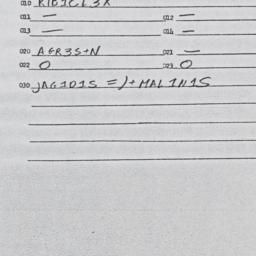 010 R1D1CL3X
011 — 012 —
013 — 014 —
020 AGR3S+N 021 —
022 O 023 O
030 JAG1D1S =)+MAL1N1S